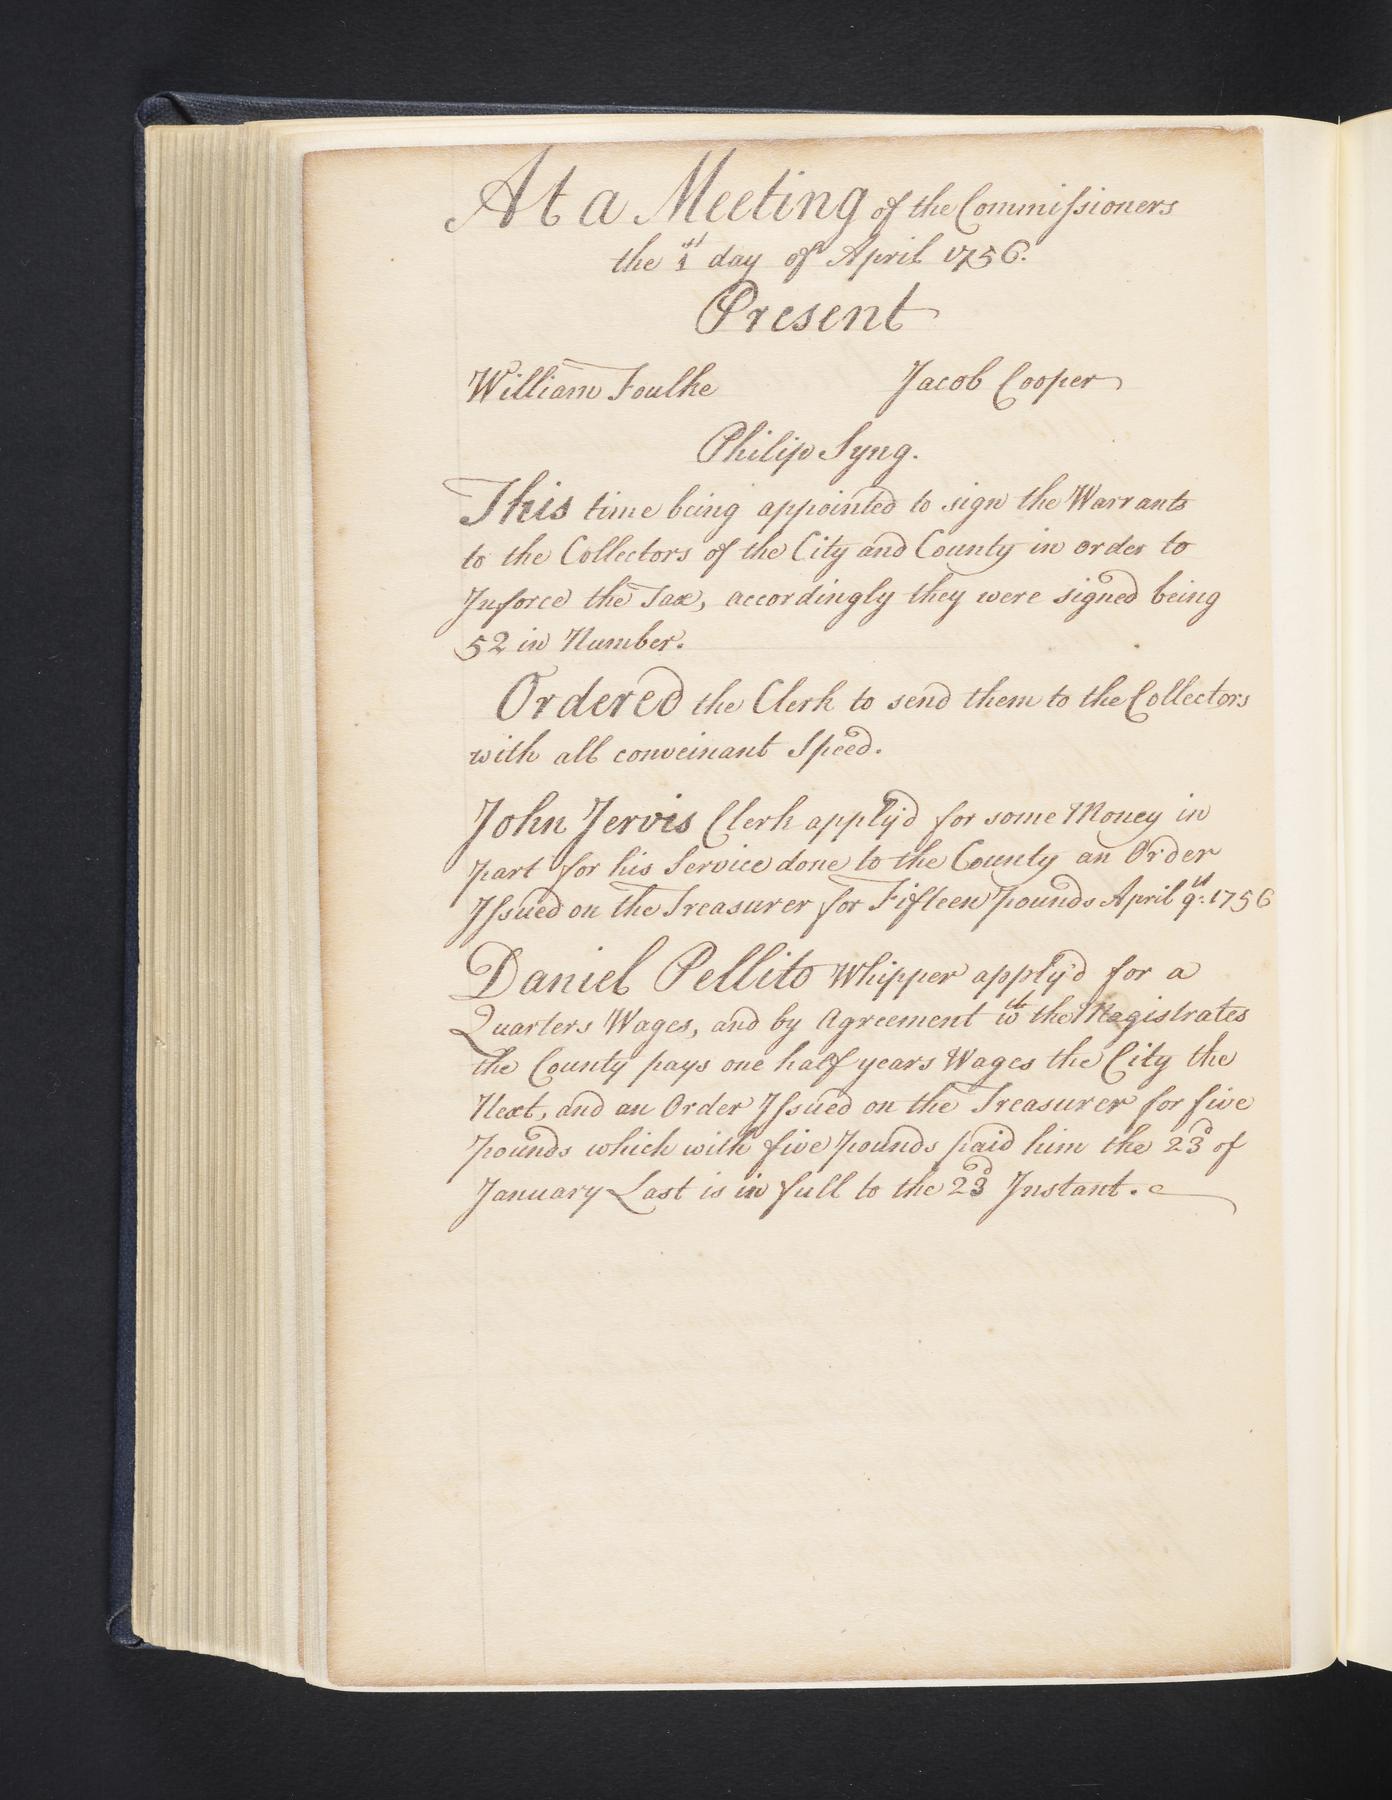 At a Meeting of the Commissioners
the 1st day of April 1756.
Present
William Foulke Jacob Cooper
Philip Syng.
This time being appointed to sign the Warrants
to the Collectors of the City and County in order to
Inforce the Tax, accordingly they were signed being
52 in Number.
Ordered the Clerk to send them to the Collectors
with all conveinant Speed.
John Jervis Clerk apply'd for some Money in
part for his Service done to the County an Order
Issued on the Treasurer for Fifteen pounds April 9th. 1756
Daniel Pellito Whipper apply'd for a
Quarters Wages, and by Agreement wth the Magistrates
the County pays one half years Wages the City the
Next, and an Order Issued on the Treasurer for five
pounds which with five pounds paid him the 23d of
January Last is in full to the 23d Instant.